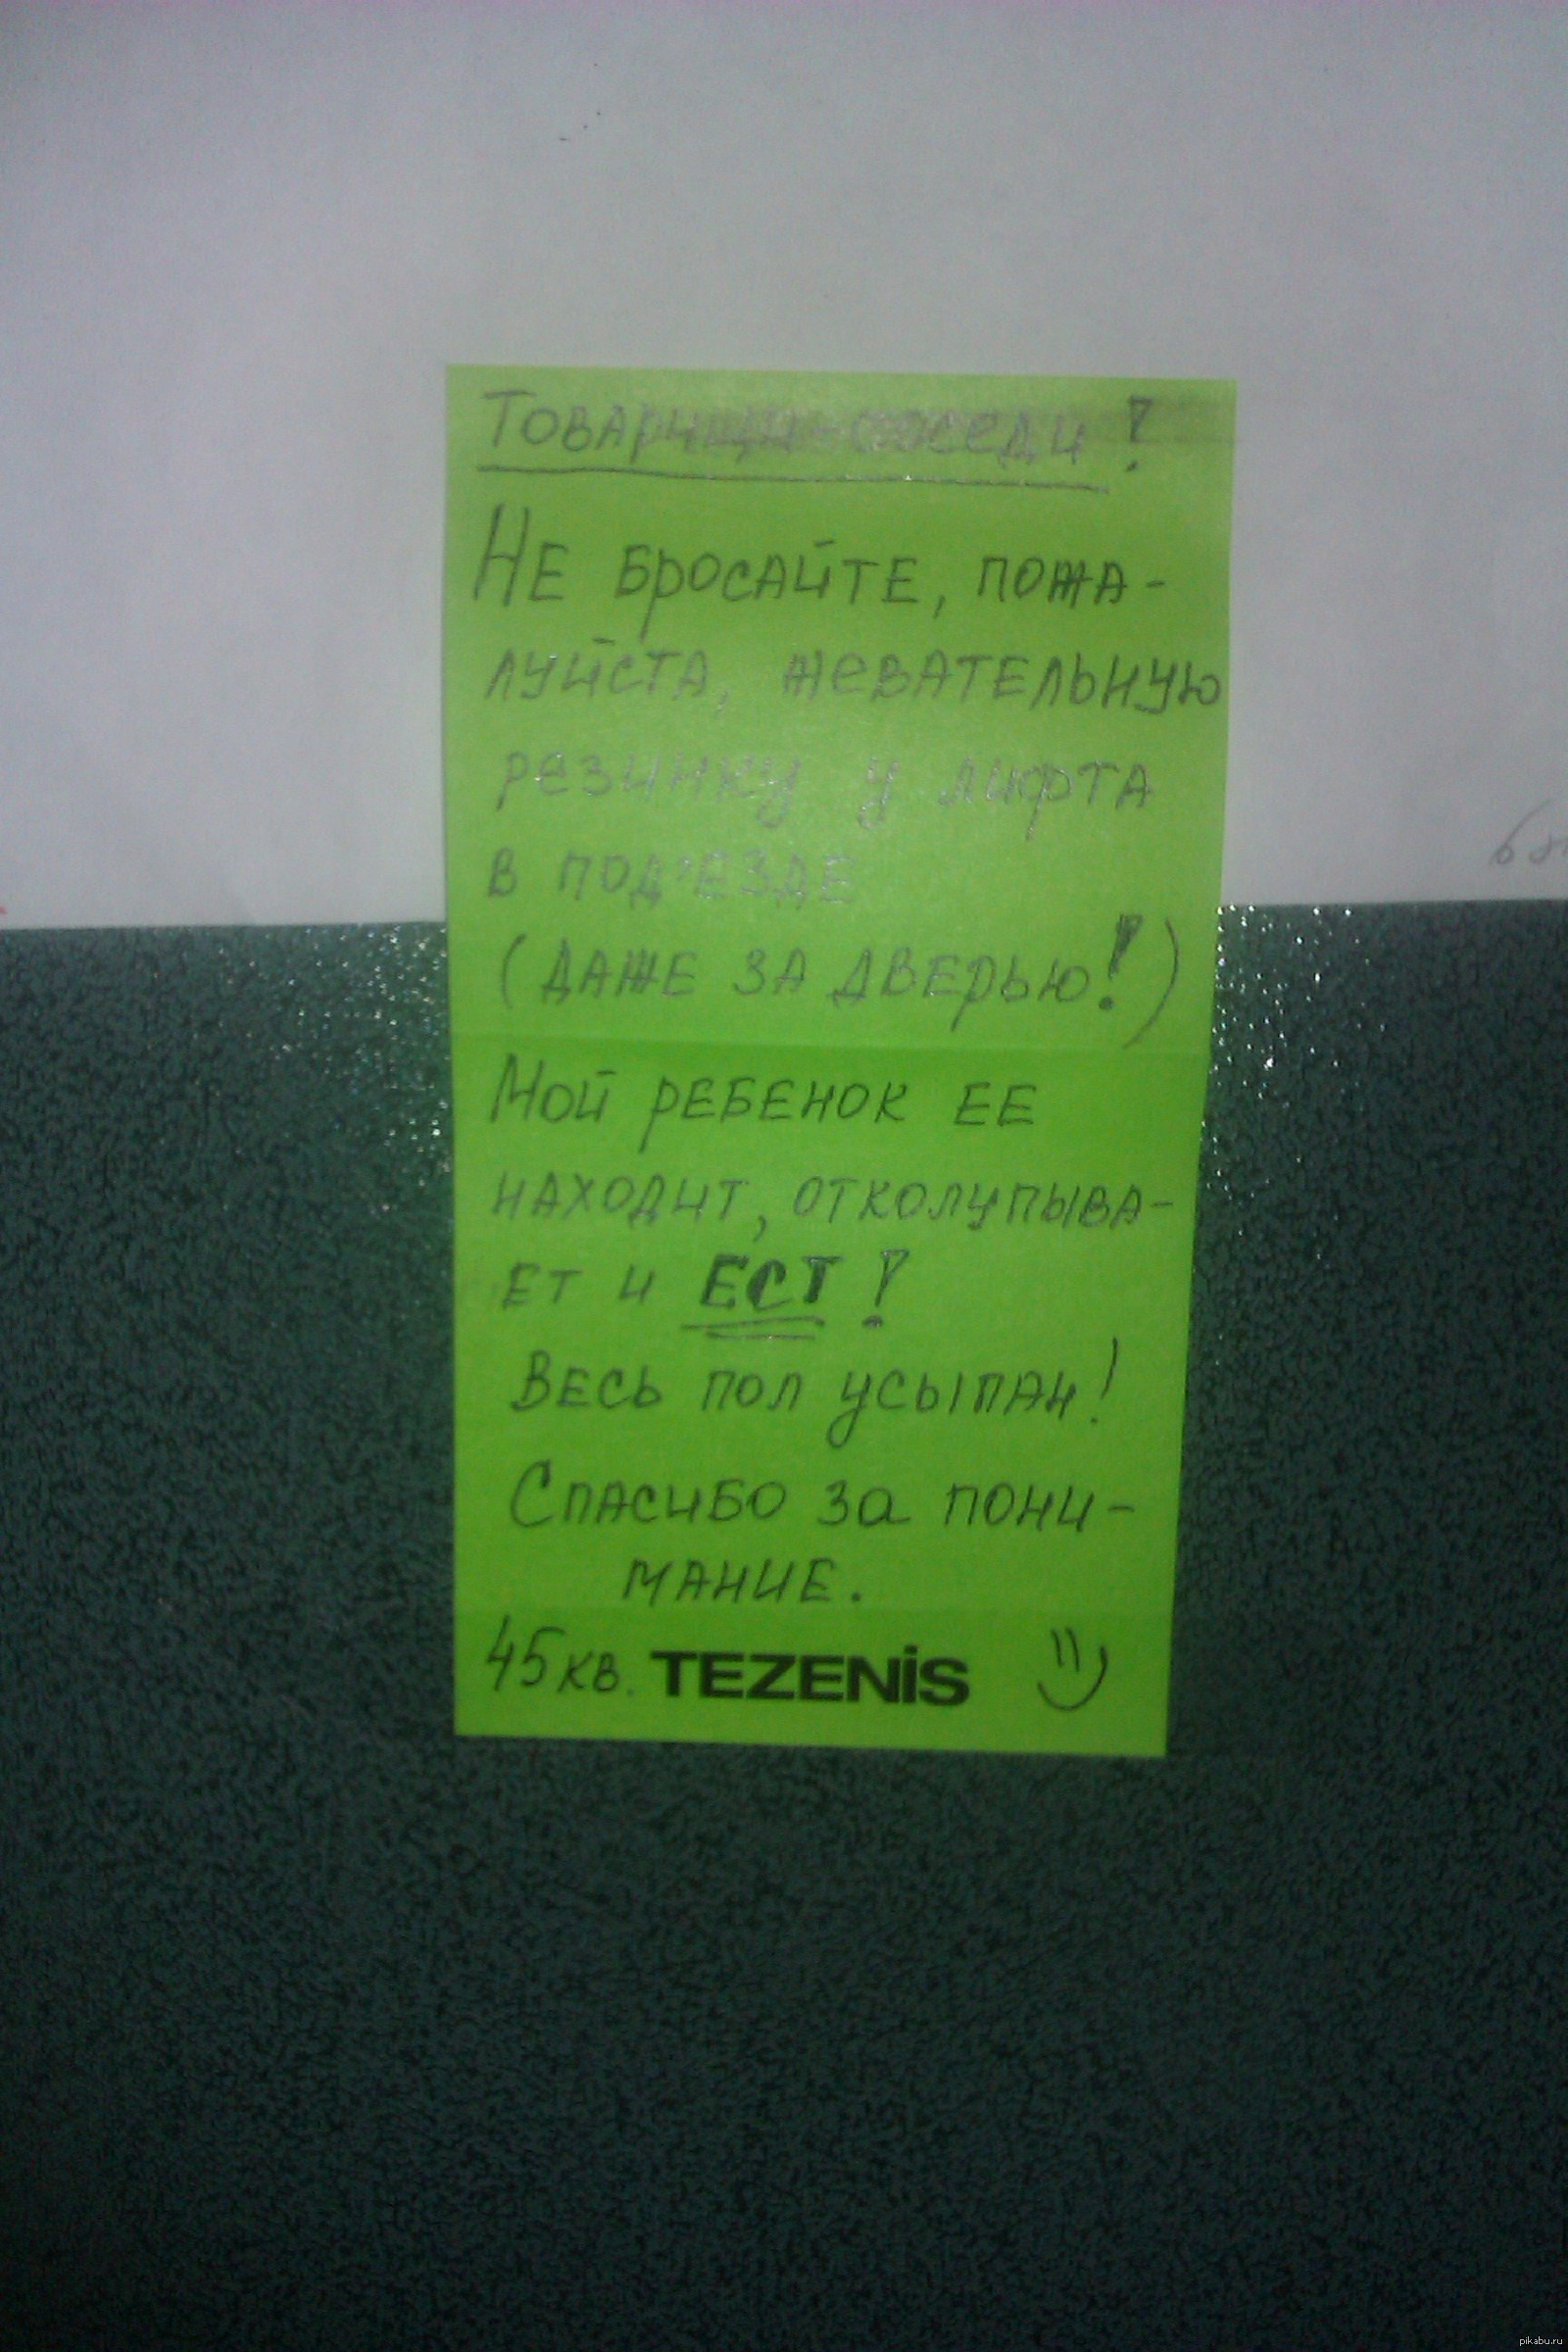 Товарищи соседи!
Не бросайте, пожа-
луйста, жевательную
резинку у лифта
в под'езде
(даже за дверью!)
Мой ребенок ее
находит, отколупыва-
ет и ЕСТ!
Весь пол усыпан!
Спасибо за пони-
мание.
45 кв. TEZENiS
pikabu.ru